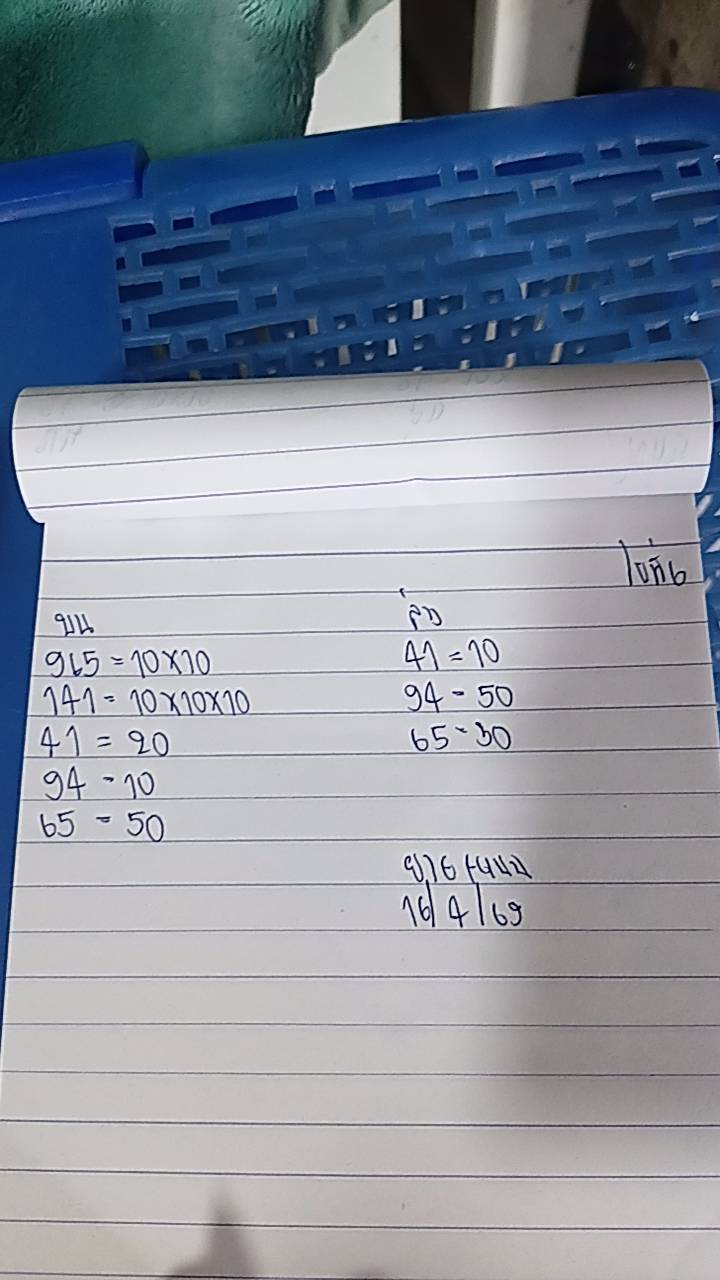 ใบที่6
บน
965 = 10×10
141 = 10×10×10
41 = 20
94 - 10
65 = 50
ล่าง
41 = 10
94 - 50
65 - 30
16/4/69